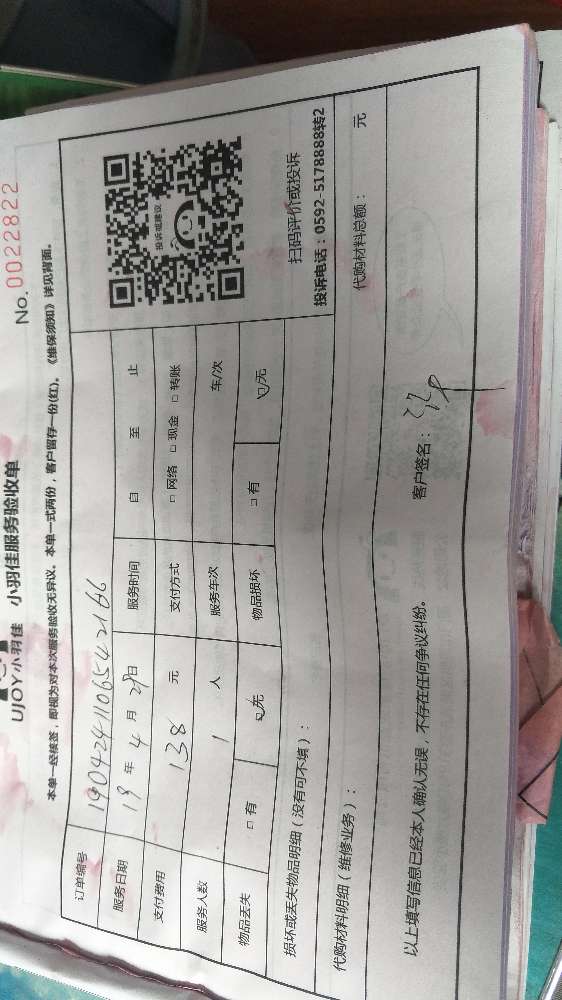 No. 0022822
UJOY小羽佳 小羽佳服务验收单
本单一经核签，即视为对本次服务验收无异议。本单一式两份，客户留存一份(红)。《维保须知》详见背面。
订单编号 1904241106542166
服务日期 19年4月29日 服务时间 自 至 止
支付费用 138 元 支付方式 □网络 □现金 □转账
服务人数 1 人 服务车次 车/次
物品丢失 □有 ☑无 物品损坏 □有 ☑无
投诉或建议
扫码评价或投诉
投诉电话：0592-5178888转2
损坏或丢失物品明细（没有可不填）：
代购材料明细（维修业务）： 代购材料总额： 元
以上填写信息已经本人确认无误，不存在任何争议纠纷。 客户签名：